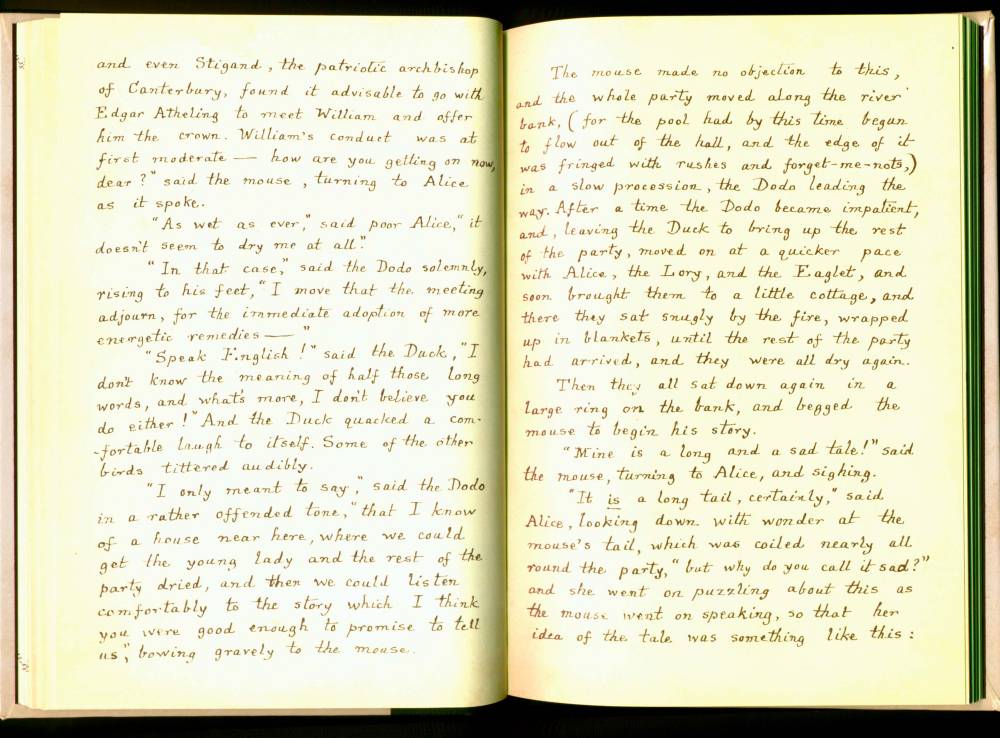 and even Stigand, the patriotic archbishop
of Canterbury, found it advisable to go with
Edgar Atheling to meet William and offer
him the crown. William's conduct was at
first moderate — how are you getting on now,
dear?" said the mouse, turning to Alice
as it spoke.
"As wet as ever," said poor Alice, "it
doesn't seem to dry me at all."
"In that case," said the Dodo solemnly,
rising to his feet, "I move that the meeting
adjourn, for the immediate adoption of more
energetic remedies — "
"Speak English!" said the Duck, "I
don't know the meaning of half those long
words, and what's more, I don't believe you
do either!" And the Duck quacked a com-
-fortable laugh to itself. Some of the other
birds tittered audibly.
"I only meant to say," said the Dodo
in a rather offended tone, "that I know
of a house near here, where we could
get the young lady and the rest of the
party dried, and then we could listen
comfortably to the story which I think
you were good enough to promise to tell
us," bowing gravely to the mouse.
The mouse made no objection to this,
and the whole party moved along the river
bank, (for the pool had by this time begun
to flow out of the hall, and the edge of it
was fringed with rushes and forget-me-nots,)
in a slow procession, the Dodo leading the
way. After a time the Dodo became impatient,
and, leaving the Duck to bring up the rest
of the party, moved on at a quicker pace
with Alice, the Lory, and the Eaglet, and
soon brought them to a little cottage, and
there they sat snugly by the fire, wrapped
up in blankets, until the rest of the party
had arrived, and they were all dry again.
Then they all sat down again in a
large ring on the bank, and begged the
mouse to begin his story.
"Mine is a long and a sad tale!" said
the mouse, turning to Alice, and sighing.
"It is a long tail, certainly," said
Alice, looking down with wonder at the
mouse's tail, which was coiled nearly all
round the party, "but why do you call it sad?"
and she went on puzzling about this as
the mouse went on speaking, so that her
idea of the tale was something like this: